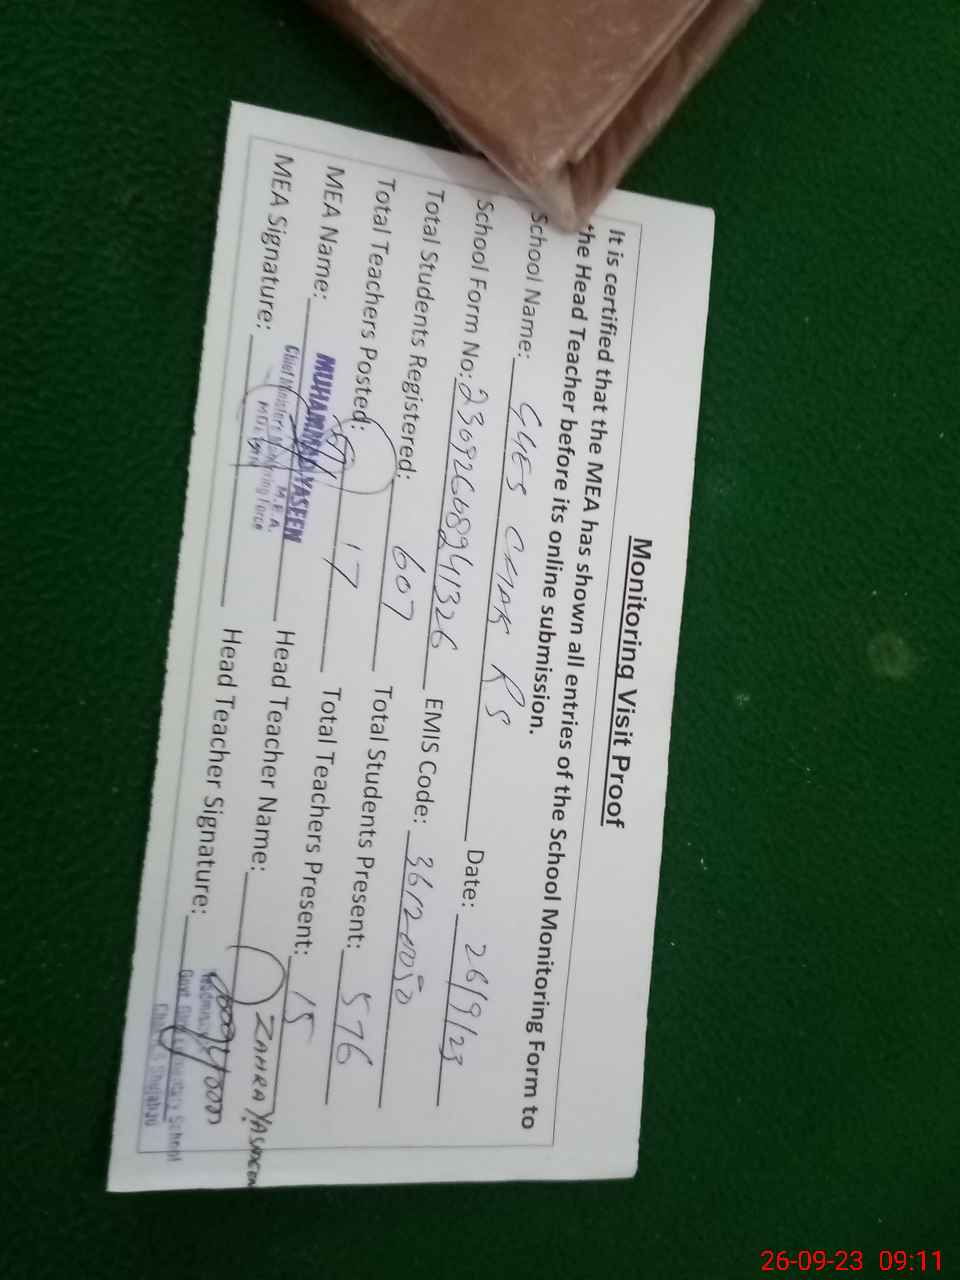 Monitoring Visit Proof
It is certified that the MEA has shown all entries of the School Monitoring Form to
the Head Teacher before its online submission.
School Name: GGES CHAK RS Date: 26/9/23
School Form No: EMIS Code:
Total Students Registered: 607 Total Students Present: 576
Total Teachers Posted: 17 Total Teachers Present: 15
MEA Name: MUHAMMAD YASEEN Head Teacher Name: ZAHRA YASMEEN
M.E.A.
Chief Minister's Monitoring Force
MEA Signature: Head Teacher Signature:
Headmistress
Govt. Girls Elementary School
Chak R.S Shujabad
26-09-23 09:11